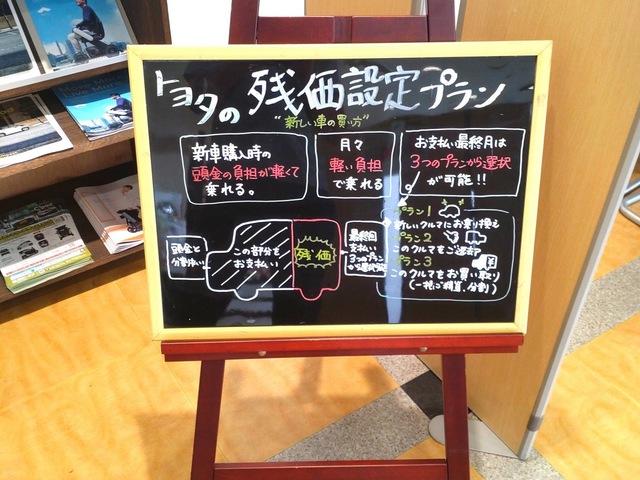 トヨタの 残価設定プラン
"新しい車の買い方"
新車購入時の
頭金の負担が軽くて
乗れる。
月々
軽い負担
で乗れる
お支払い最終月は
3つのプランから選択
が可能!!
頭金と
分割払い
この部分を
お支払い
残価
最終回
支払い
3つのプラン
から選択可能
プラン1
新しいクルマにお乗り換え
プラン2
このクルマをご返却
プラン3
このクルマをお買い取り
(一括ご精算、分割)